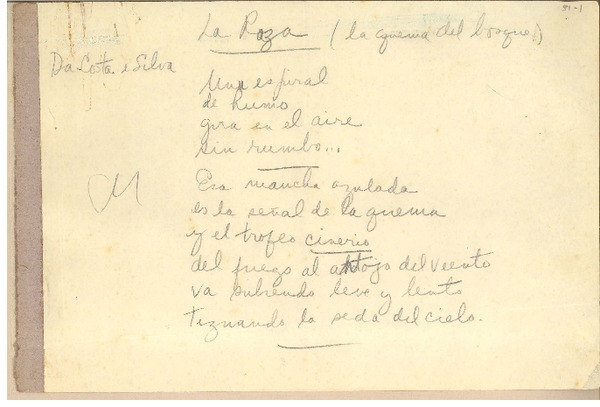 La Roza (la quema del bosque)
Da Costa e Silva
Una espiral
de humo
gira en el aire
sin rumbo...
Esa mancha azulada
es la señal de la quema
y el trofeo cinerio
del fuego al antojo del viento
va subiendo leve y lento
tiznando la seda del cielo.